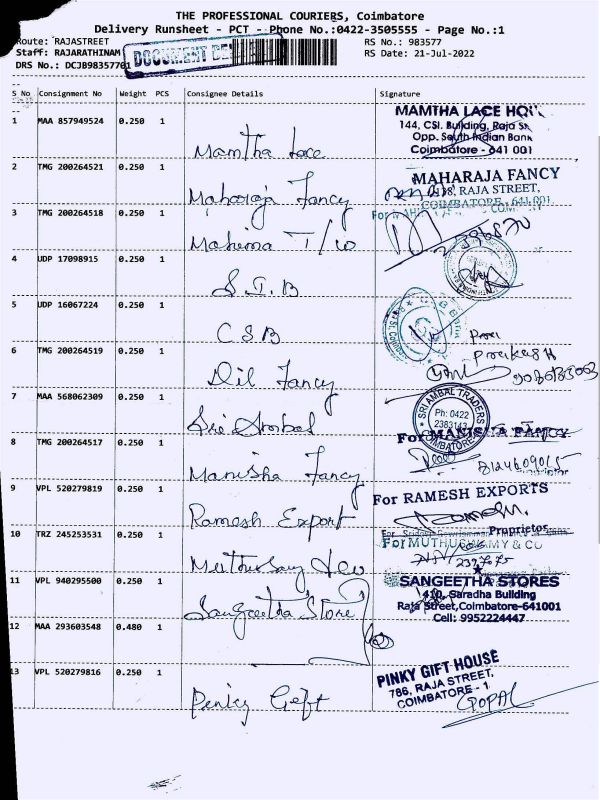 THE PROFESSIONAL COURIERS, Coimbatore
Delivery Runsheet - PCT - Phone No.:0422-3505555 - Page No.:1
Route: RAJASTREET RS No.: 983577
Staff: RAJARATHINAM RS Date: 21-Jul-2022
DRS No.: DCJB98357701
S No Consignment No Weight PCS Consignee Details Signature
1 MAA 857949524 0.250 1 Mamtha Lace
MAMTHA LACE
144, CSI. Building, Raja
Opp. South Indian Bank
Coimbatore - 641 001
2 TMG 200264521 0.250 1 Maharaja Fancy
MAHARAJA FANCY
RAJA STREET,
COIMBATORE - 641 001
3 TMG 200264518 0.250 1 Mahima T/w
4 UDP 17098915 0.250 1 S.I.B
5 UDP 16067224 0.250 1 C.S.B
6 TMG 200264519 0.250 1 Dil Fancy
Prakash
7 MAA 568062309 0.250 1 Sri Ambal
SRI AMBAL TRADERS
Ph: 0422
2383143
COIMBATORE
8 TMG 200264517 0.250 1 Manisha Fancy
For MANISHA FANCY
9 VPL 520279819 0.250 1 Ramesh Export
For RAMESH EXPORTS
Proprietor
10 TRZ 245253531 0.250 1
For MUTHUSWAMY & CO
11 VPL 940295500 0.250 1 Sangeetha Store
SANGEETHA STORES
410, Saradha Building
Raja Street, Coimbatore-641001
Cell: 9952224447
12 MAA 293603548 0.480 1
13 VPL 520279816 0.250 1 Pinky Gift
PINKY GIFT HOUSE
786, RAJA STREET,
COIMBATORE - 1
GOPAL